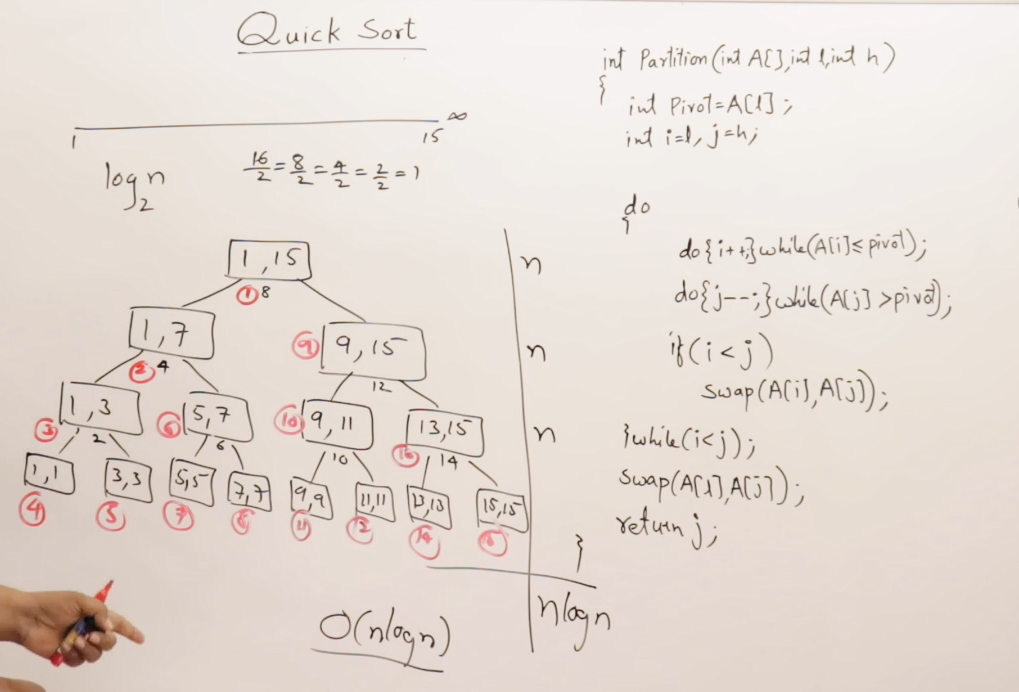 Quick Sort
1 15 ∞
log₂n
16/2 = 8/2 = 4/2 = 2/2 = 1
1, 15
① 8
1, 7
② 4
⑨ 9, 15
12
1, 3
③ 2
⑥ 5, 7
6
⑩ 9, 11
10
13, 15
14
1, 1
3, 3
5, 5
7, 7
9, 9
11, 11
13, 13
15, 15
④ ⑤ ⑦ ⑧ ⑪ ⑫ ⑭ ⑮
n
n
n
nlogn
O(nlogn)
int Partition(int A[], int l, int h)
{
int Pivot=A[l];
int i=l, j=h;
do
{
do{i++;}while(A[i]≤pivot);
do{j--;}while(A[j]>pivot);
if(i<j)
swap(A[i],A[j]);
}while(i<j);
swap(A[l],A[j]);
return j;
}